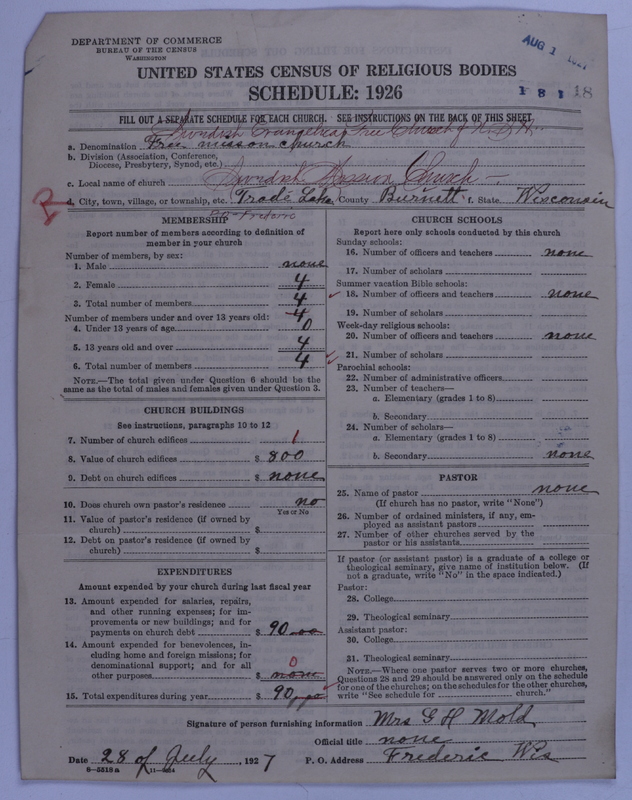 DEPARTMENT OF COMMERCE
BUREAU OF THE CENSUS
WASHINGTON
AUG 1 1927
UNITED STATES CENSUS OF RELIGIOUS BODIES
SCHEDULE: 1926
1 8 1 18
FILL OUT A SEPARATE SCHEDULE FOR EACH CHURCH. SEE INSTRUCTIONS ON THE BACK OF THIS SHEET
Swedish Evangelical Free Church of N. A.
a. Denomination Free mission church
b. Division (Association, Conference,
Diocese, Presbytery, Synod, etc.)
c. Local name of church Swedish Mission Church
City, town, village, or township, etc. Trade Lake County Burnett f. State Wisconsin
R
MEMBERSHIP
Report number of members according to definition of
member in your church
Number of members, by sex:
1. Male none
2. Female 4
3. Total number of members 4
Number of members under and over 13 years old: 4
4. Under 13 years of age 0
5. 13 years old and over 4
6. Total number of members 4
NOTE.—The total given under Question 6 should be the
same as the total of males and females given under Question 3.
CHURCH BUILDINGS
See instructions, paragraphs 10 to 12
7. Number of church edifices 1
8. Value of church edifices $ 800
9. Debt on church edifices $ none
10. Does church own pastor's residence no
Yes or No
11. Value of pastor's residence (if owned by
church) $
12. Debt on pastor's residence (if owned by
church) $
EXPENDITURES
Amount expended by your church during last fiscal year
13. Amount expended for salaries, repairs,
and other running expenses; for im-
provements or new buildings; and for
payments on church debt $ 90.00
14. Amount expended for benevolences, in-
cluding home and foreign missions; for
denominational support; and for all
0
other purposes $ none
15. Total expenditures during year $ 90.00
CHURCH SCHOOLS
Report here only schools conducted by this church
Sunday schools:
16. Number of officers and teachers none
17. Number of scholars
Summer vacation Bible schools:
18. Number of officers and teachers none
19. Number of scholars
Week-day religious schools:
20. Number of officers and teachers none
21. Number of scholars
Parochial schools:
22. Number of administrative officers
23. Number of teachers—
a. Elementary (grades 1 to 8)
b. Secondary
24. Number of scholars—
a. Elementary (grades 1 to 8)
b. Secondary none
PASTOR
25. Name of pastor none
(If church has no pastor, write "None")
26. Number of ordained ministers, if any, em-
ployed as assistant pastors
27. Number of other churches served by the
pastor or his assistants
If pastor (or assistant pastor) is a graduate of a college or
theological seminary, give name of institution below. (If
not a graduate, write "No" in the space indicated.)
Pastor:
28. College
29. Theological seminary
Assistant pastor:
30. College
31. Theological seminary
NOTE.—Where one pastor serves two or more churches,
Questions 28 and 29 should be answered only on the schedule
for one of the churches; on the schedules for the other churches,
write "See schedule for church."
Signature of person furnishing information Mrs G H Mold
Official title none
Date 28 of July, 1927 P. O. Address Frederic Wis
8—5518 a